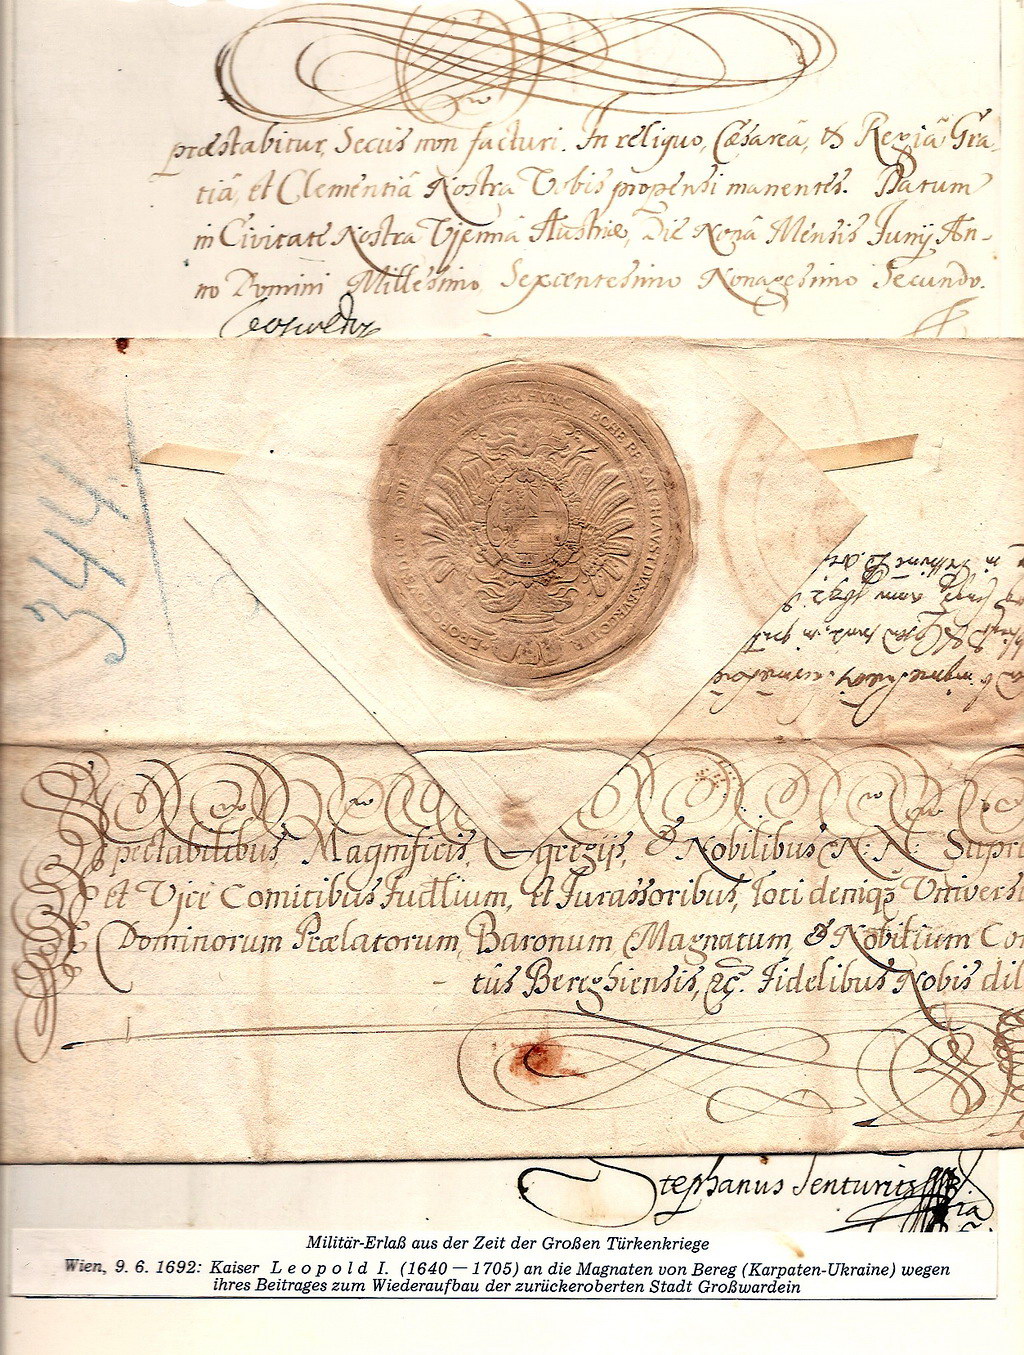 præstabitur, Secus non facturi. In reliquo, Cæsareâ, & Regiâ Gra-
tiâ, et Clementiâ Nostra Vobis propensi manentes. Datum
in Civitate Nostra Viennâ Austriæ, Die Nonâ Mensis Junij An-
no Domini Millesimo, Sexcentesimo Nonagesimo Secundo.
Leopoldus
344
Spectabilibus, Magnificis, Egregijs, & Nobilibus N: N: Supre
et Vice Comitibus Judlium, et Jurassoribus, toti deniq Universi
Dominorum Prælatorum, Baronum, Magnatum, & Nobilium Co
tûs Bereghiensis, &c. Fidelibus Nobis dil
Stephanus
Militär-Erlaß aus der Zeit der Großen Türkenkriege
Wien, 9. 6. 1692: Kaiser Leopold I. (1640 — 1705) an die Magnaten von Bereg (Karpaten-Ukraine) wegen
ihres Beitrages zum Wiederaufbau der zurückeroberten Stadt Großwardein